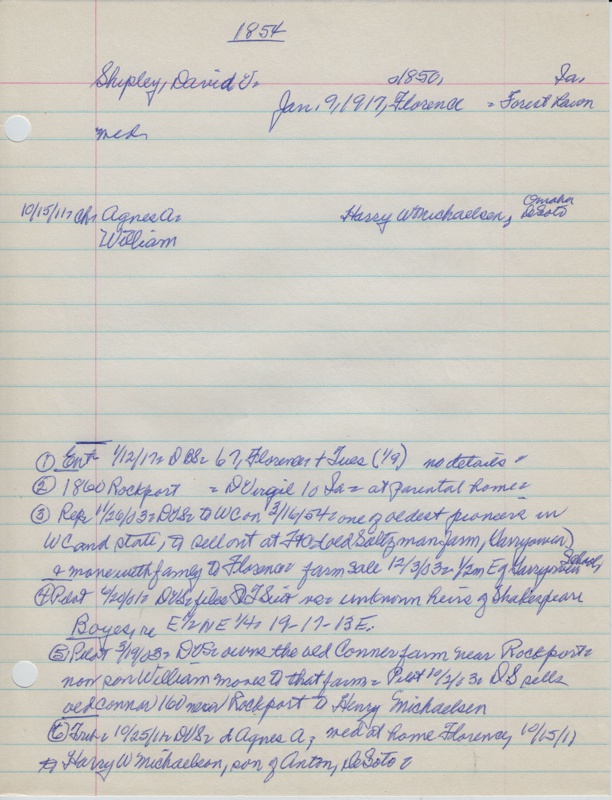 1854
Shipley, David V= c1850, Ia,
Jan. 9, 1917, Florence = Forest Lawn
med.
10/15/11= ch, Agnes A= Harry W Michaelsen, Omaha DeSoto
William
① Ent= 1/12/17= DVS= 67, Florence + Tues (1/9) no details =
② 1860 Rockport = D Virgil 10 Ia = at parental home=
③ Rep= 11/26/03= DVS= to WC on 3/16/54= one of oldest pioneers in
WC and state, to sell out at old Saltzman farm,
& move with family to Florence= farm sale 12/3/03= 1/2m E of School,
④ Pilot DVS= files Suit vs= unknown heirs of Shakespear
re E½ NE ¼= 19-17-13E.
⑤ Pilot 3/19/03= DVS= owns the old Conner farm near Rockport=
now son William moves to that farm= Pilot 10/2/03= DS sells
old Conner 160 near Rockport to Henry Michaelsen
⑥ 10/25/11= DVS= d Agnes A, med at home Florence, 10/15/11
to Harry W Michaelsen, son of Anton, DeSoto=